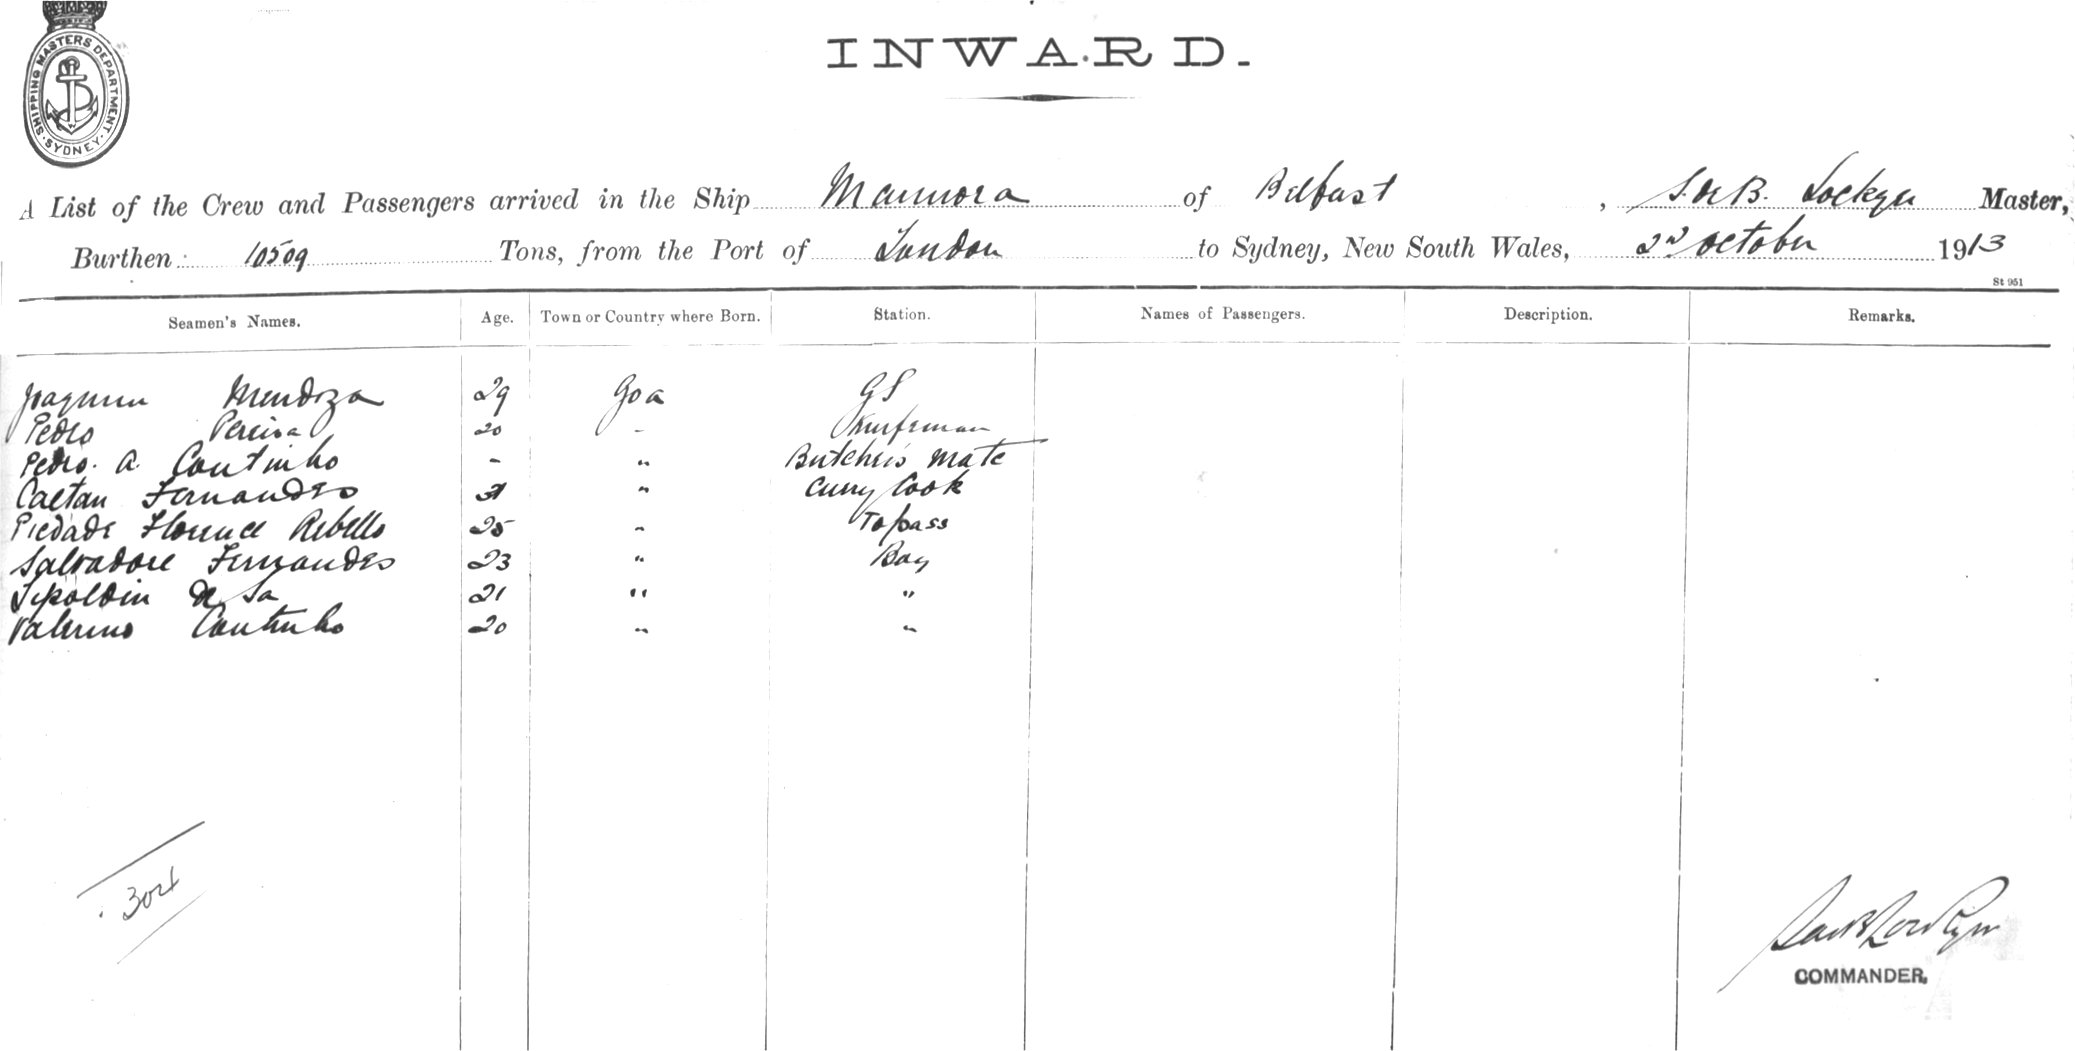 SHIPPING MASTERS DEPARTMENT. SYDNEY.
INWARD.
A List of the Crew and Passengers arrived in the Ship Marmora of Belfast, S. de B. Lockyer Master,
Burthen: 10509 Tons, from the Port of London to Sydney, New South Wales, 2nd October 1913
St 951
Seamen's Names. Age. Town or Country where Born. Station. Names of Passengers. Description. Remarks.
Mendoza 29 Goa GS
Pedro Pereira 20 -
Pedro. A. Coutinho - " Butcher's Mate
Caetan Fernandes " Curry Cook
Piedade Florence Rebello 25 " Topass
Salvadore Fernandes 23 " Boy
de Sa 21 " "
Valerino Coutinho 20 " "
COMMANDER.